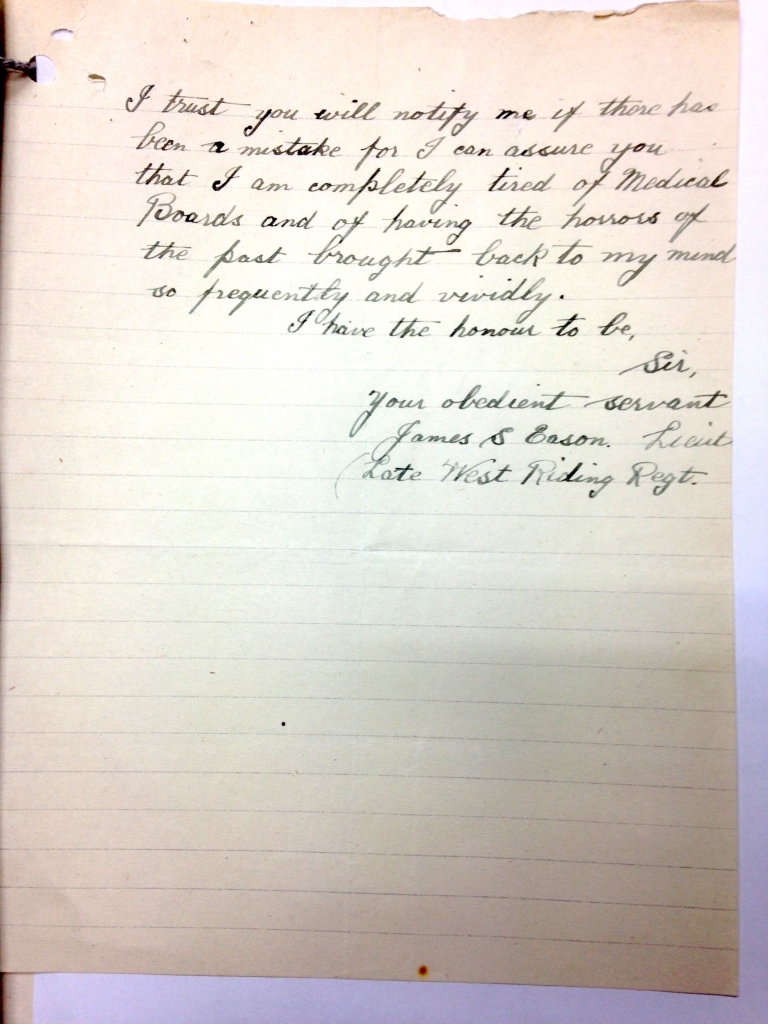 I trust you will notify me if there has
been a mistake for I can assure you
that I am completely tired of Medical
Boards and of having the horrors of
the past brought back to my mind
so frequently and vividly.
I have the honour to be,
Sir,
Your obedient servant
James S Eason. Lieut
(Late West Riding Regt.